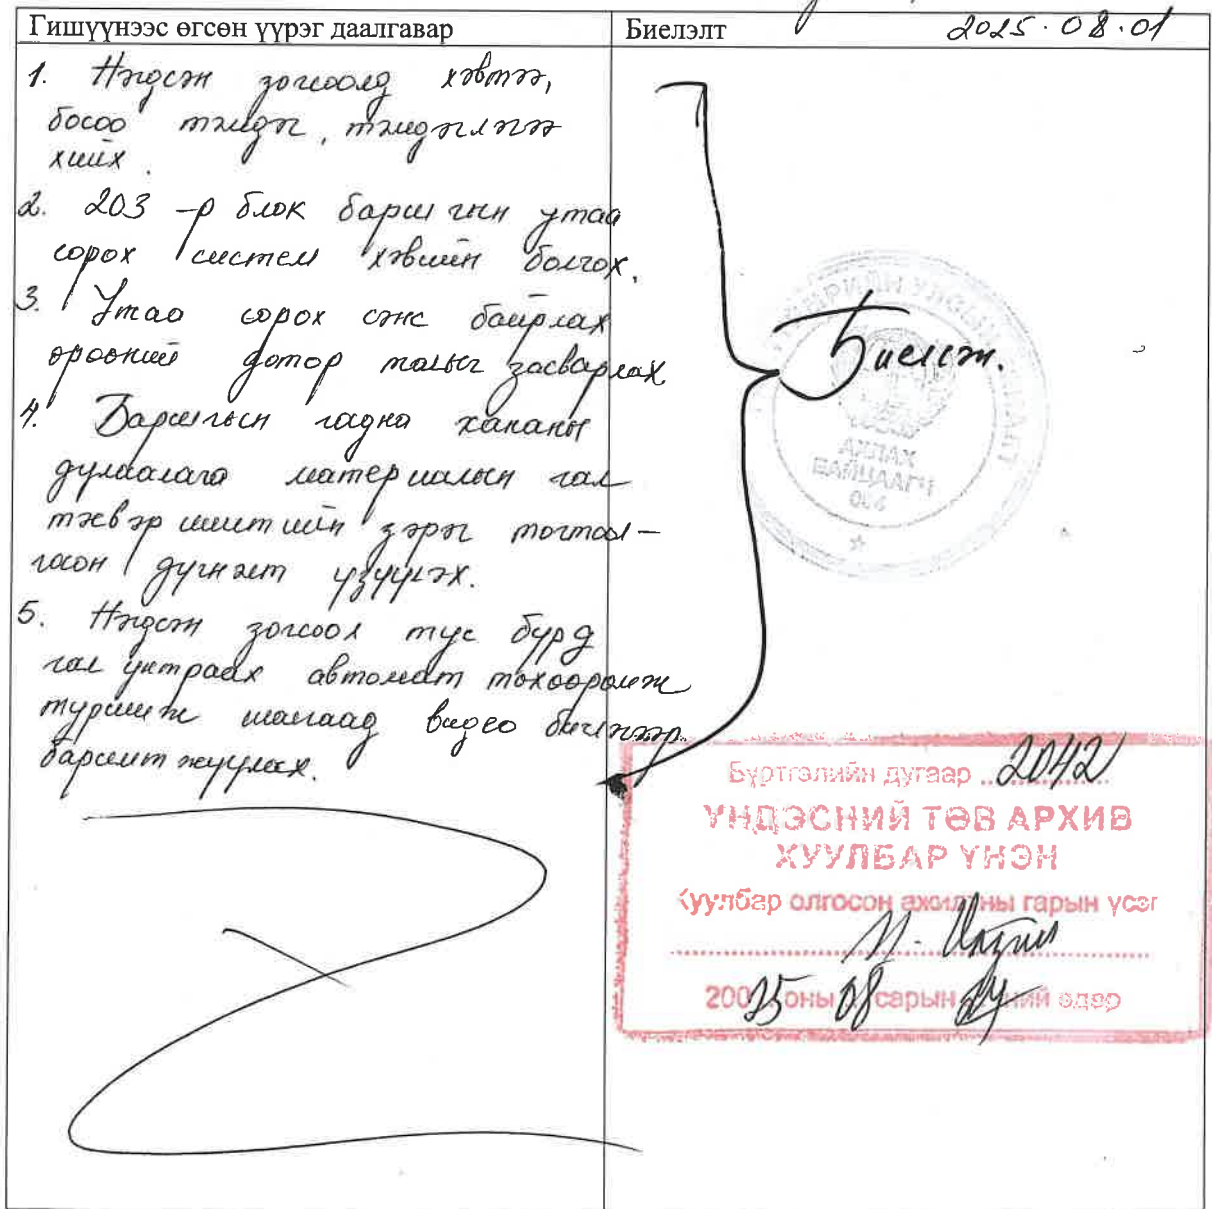 Гишүүнээс өгсөн үүрэг даалгавар
Биелэлт
2025.08.01
1. Нэгдсэн зогсоолд хэвтээ,
босоо тэмдэг, тэмдэглэгээ
хийх.
2. 203-р блок барилгын утаа
сорох систем хэвийн болгох.
3. Утаа сорох сэнс байрлах
өрөөний дотор талыг засварлах
4. Барилгын гадна ханын
дулаалага материалын гал
тэсвэршилтийн зэрэг тогтоол-
госон дүгнэлт үзүүлэх.
5. Нэгдсэн зогсоол тус бүрд
гал унтраах автомат төхөөрөмж
туршиж шалгаад видео бичлэгээр
баримтжуулах.
Биелсэн.
АХЛАХ
БАЙЦААГЧ
Бүртгэлийн дугаар 2042
ҮНДЭСНИЙ ТӨВ АРХИВ
ХУУЛБАР ҮНЭН
Хуулбар олгосон ажилтны гарын үсэг
200 25 оны 08 сарын ний өдөр